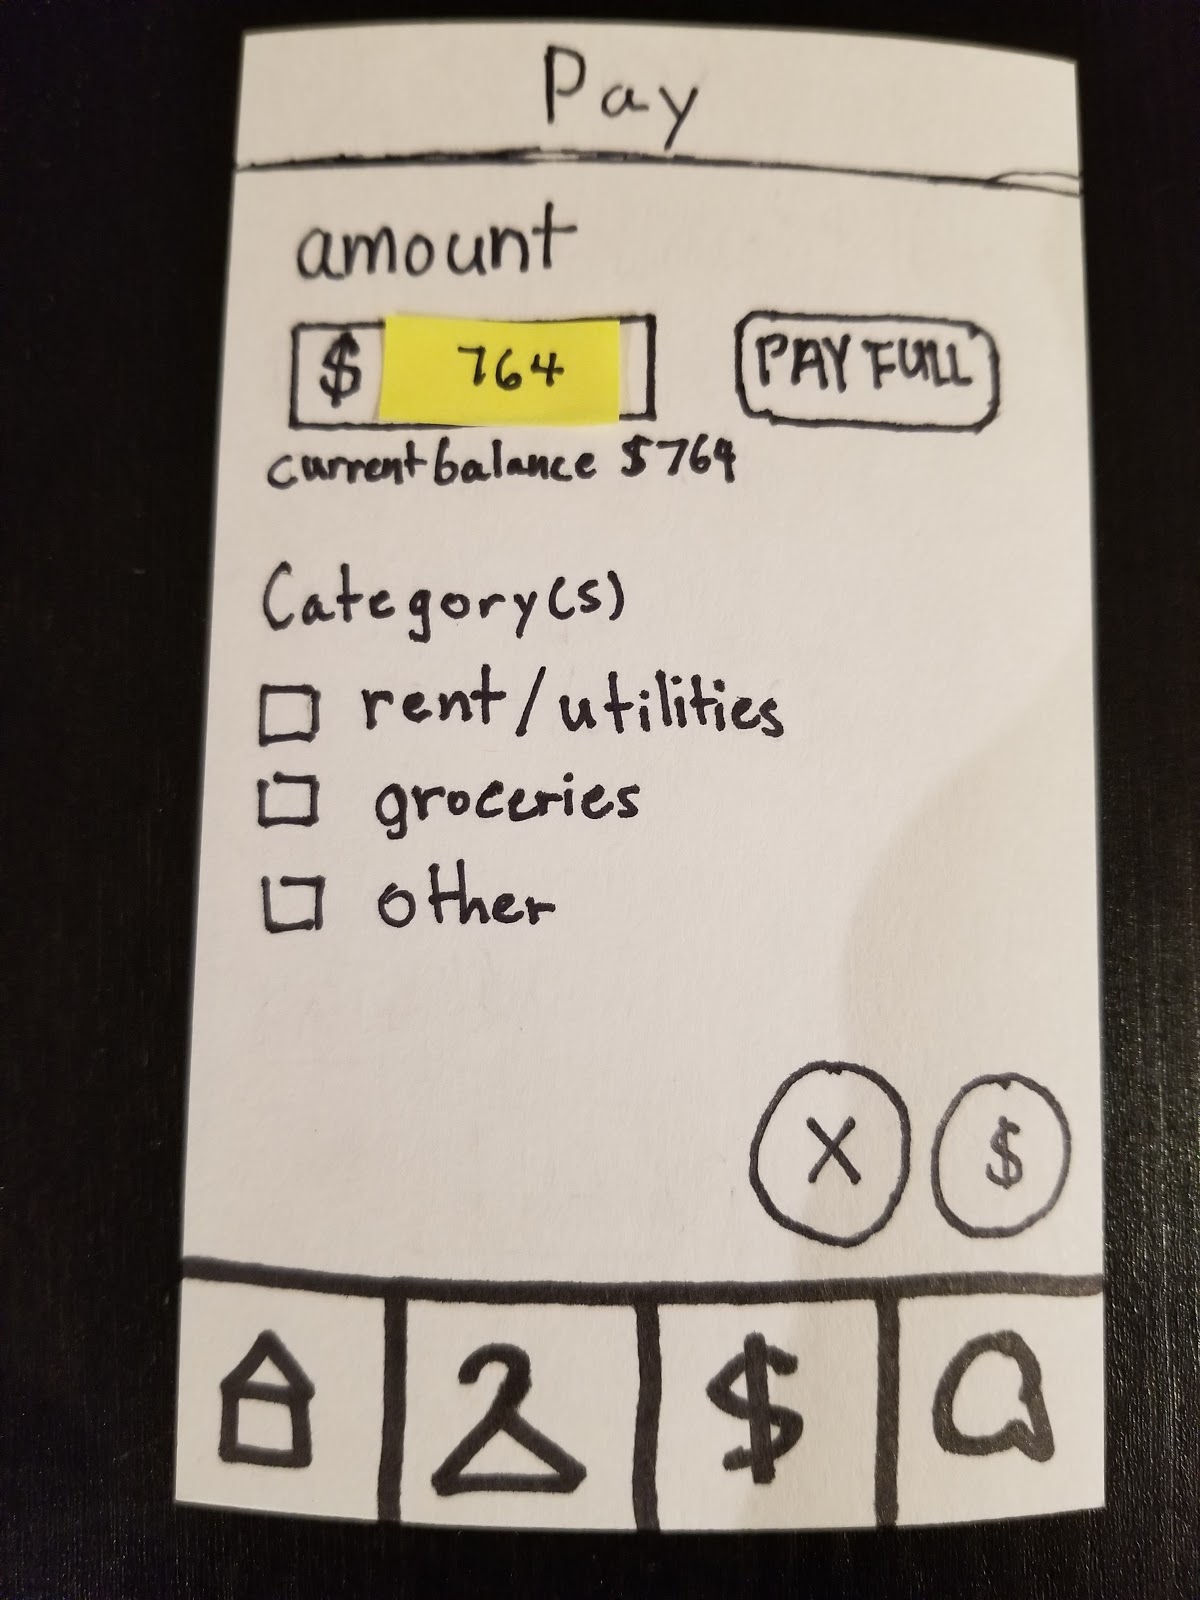 Pay
amount
$ 764 PAY FULL
current balance $764
Category(s)
rent/utilities
groceries
other
X $
$